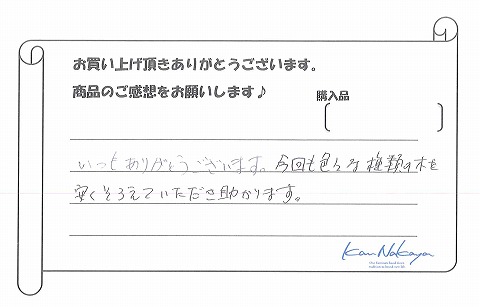 お買い上げ頂きありがとうございます。
商品のご感想をお願いします♪
購入品
いつもありがとうございます。今回も色んな種類の木を
安くそろえていただき助かります。
Kan Nakaya